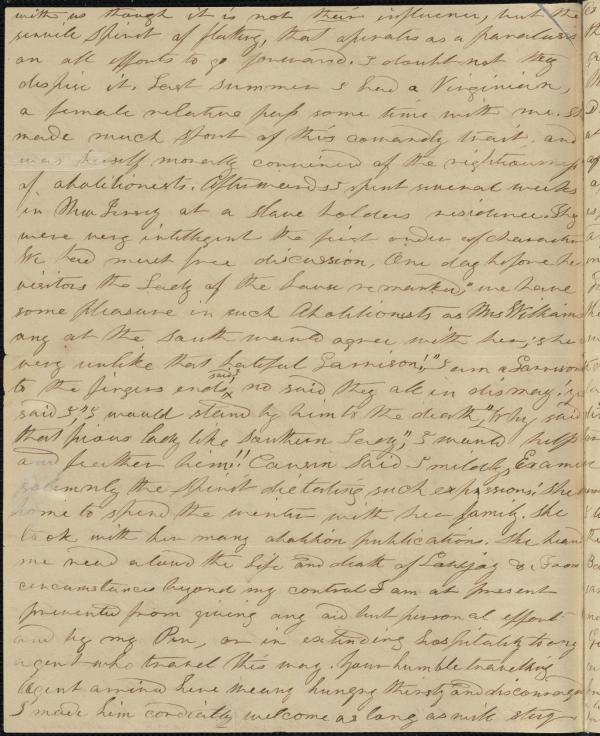 with us though it is not their influence, but the
servile spirit of flating, that operates as a paralasis
on all efforts to go forward. I doubt not they
dispise it. Last summer I had a Virginian,
a female relative pass some time with me. She
made much sport of this cowardly trait, and
was herself morally convinced of the righteousness
of abolitionests. Afterwards I spent several weeks
in New Jersey at a slave holders residence. They
were very intelligent the first order of character
We had much free discussion, One day before her
visitors the Lady of the house remarked, "we have
some pleasure in such Abolitionists as Mrs Williams
any at the South would agree with her, she
very unlike that hateful Garrison!," I am a Garrison
to the fingers ends, said I no said they all in dismay!
said I "I would stand by him to the death," Why, said
that pious lady like southern Leroy," I would help
and feather him!! Cousin said I mildly, Examine
solemnly the spirit dictating such expressions! She
home to spend the winter with her family. She
took with her many abolition publications. She heard
me read aloud the Life and death of Lovejoy &c From
circumstances beyond my control I am at present
prevented from giving any aid but personal effort
and by my Pen, or in extending hospitality to any
agent who travel this way. Your humble traveling
Agent arrived here weary hungry thirsty and discouraged
I made him cordially welcome as long as will stay